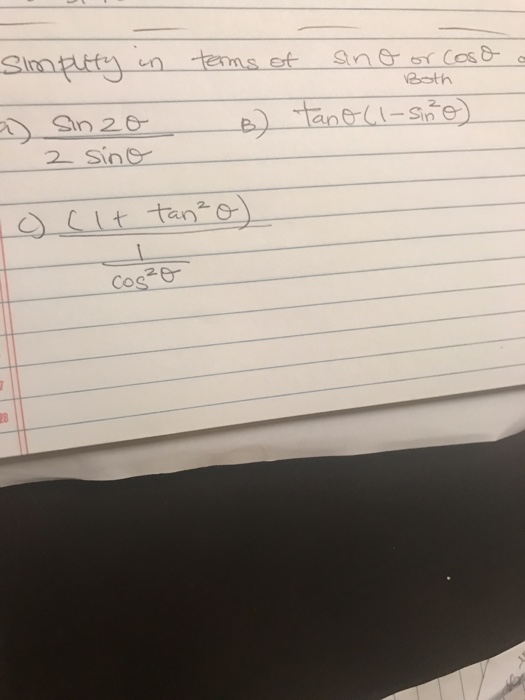 Simplify in terms of sin θ or cos θ
Both
a) sin 2θ / 2 sin θ B) tan θ (1 - sin²θ)
c) (1 + tan² θ) / 1 / cos² θ
28